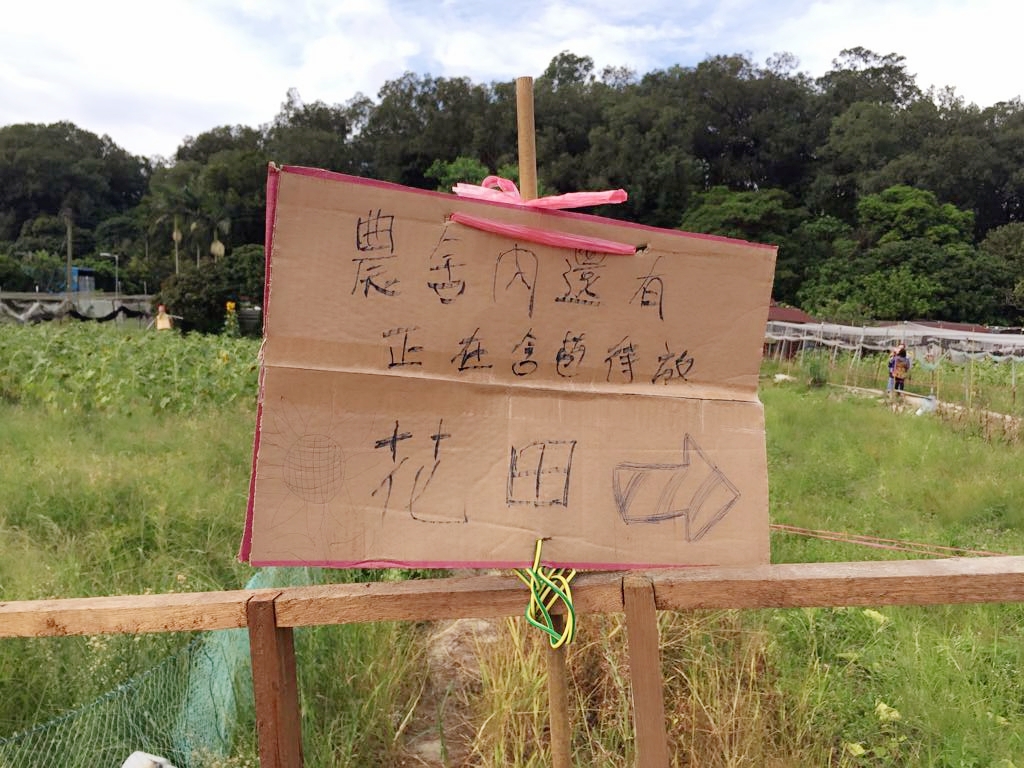 農舍內還有
正在含苞待放
花田